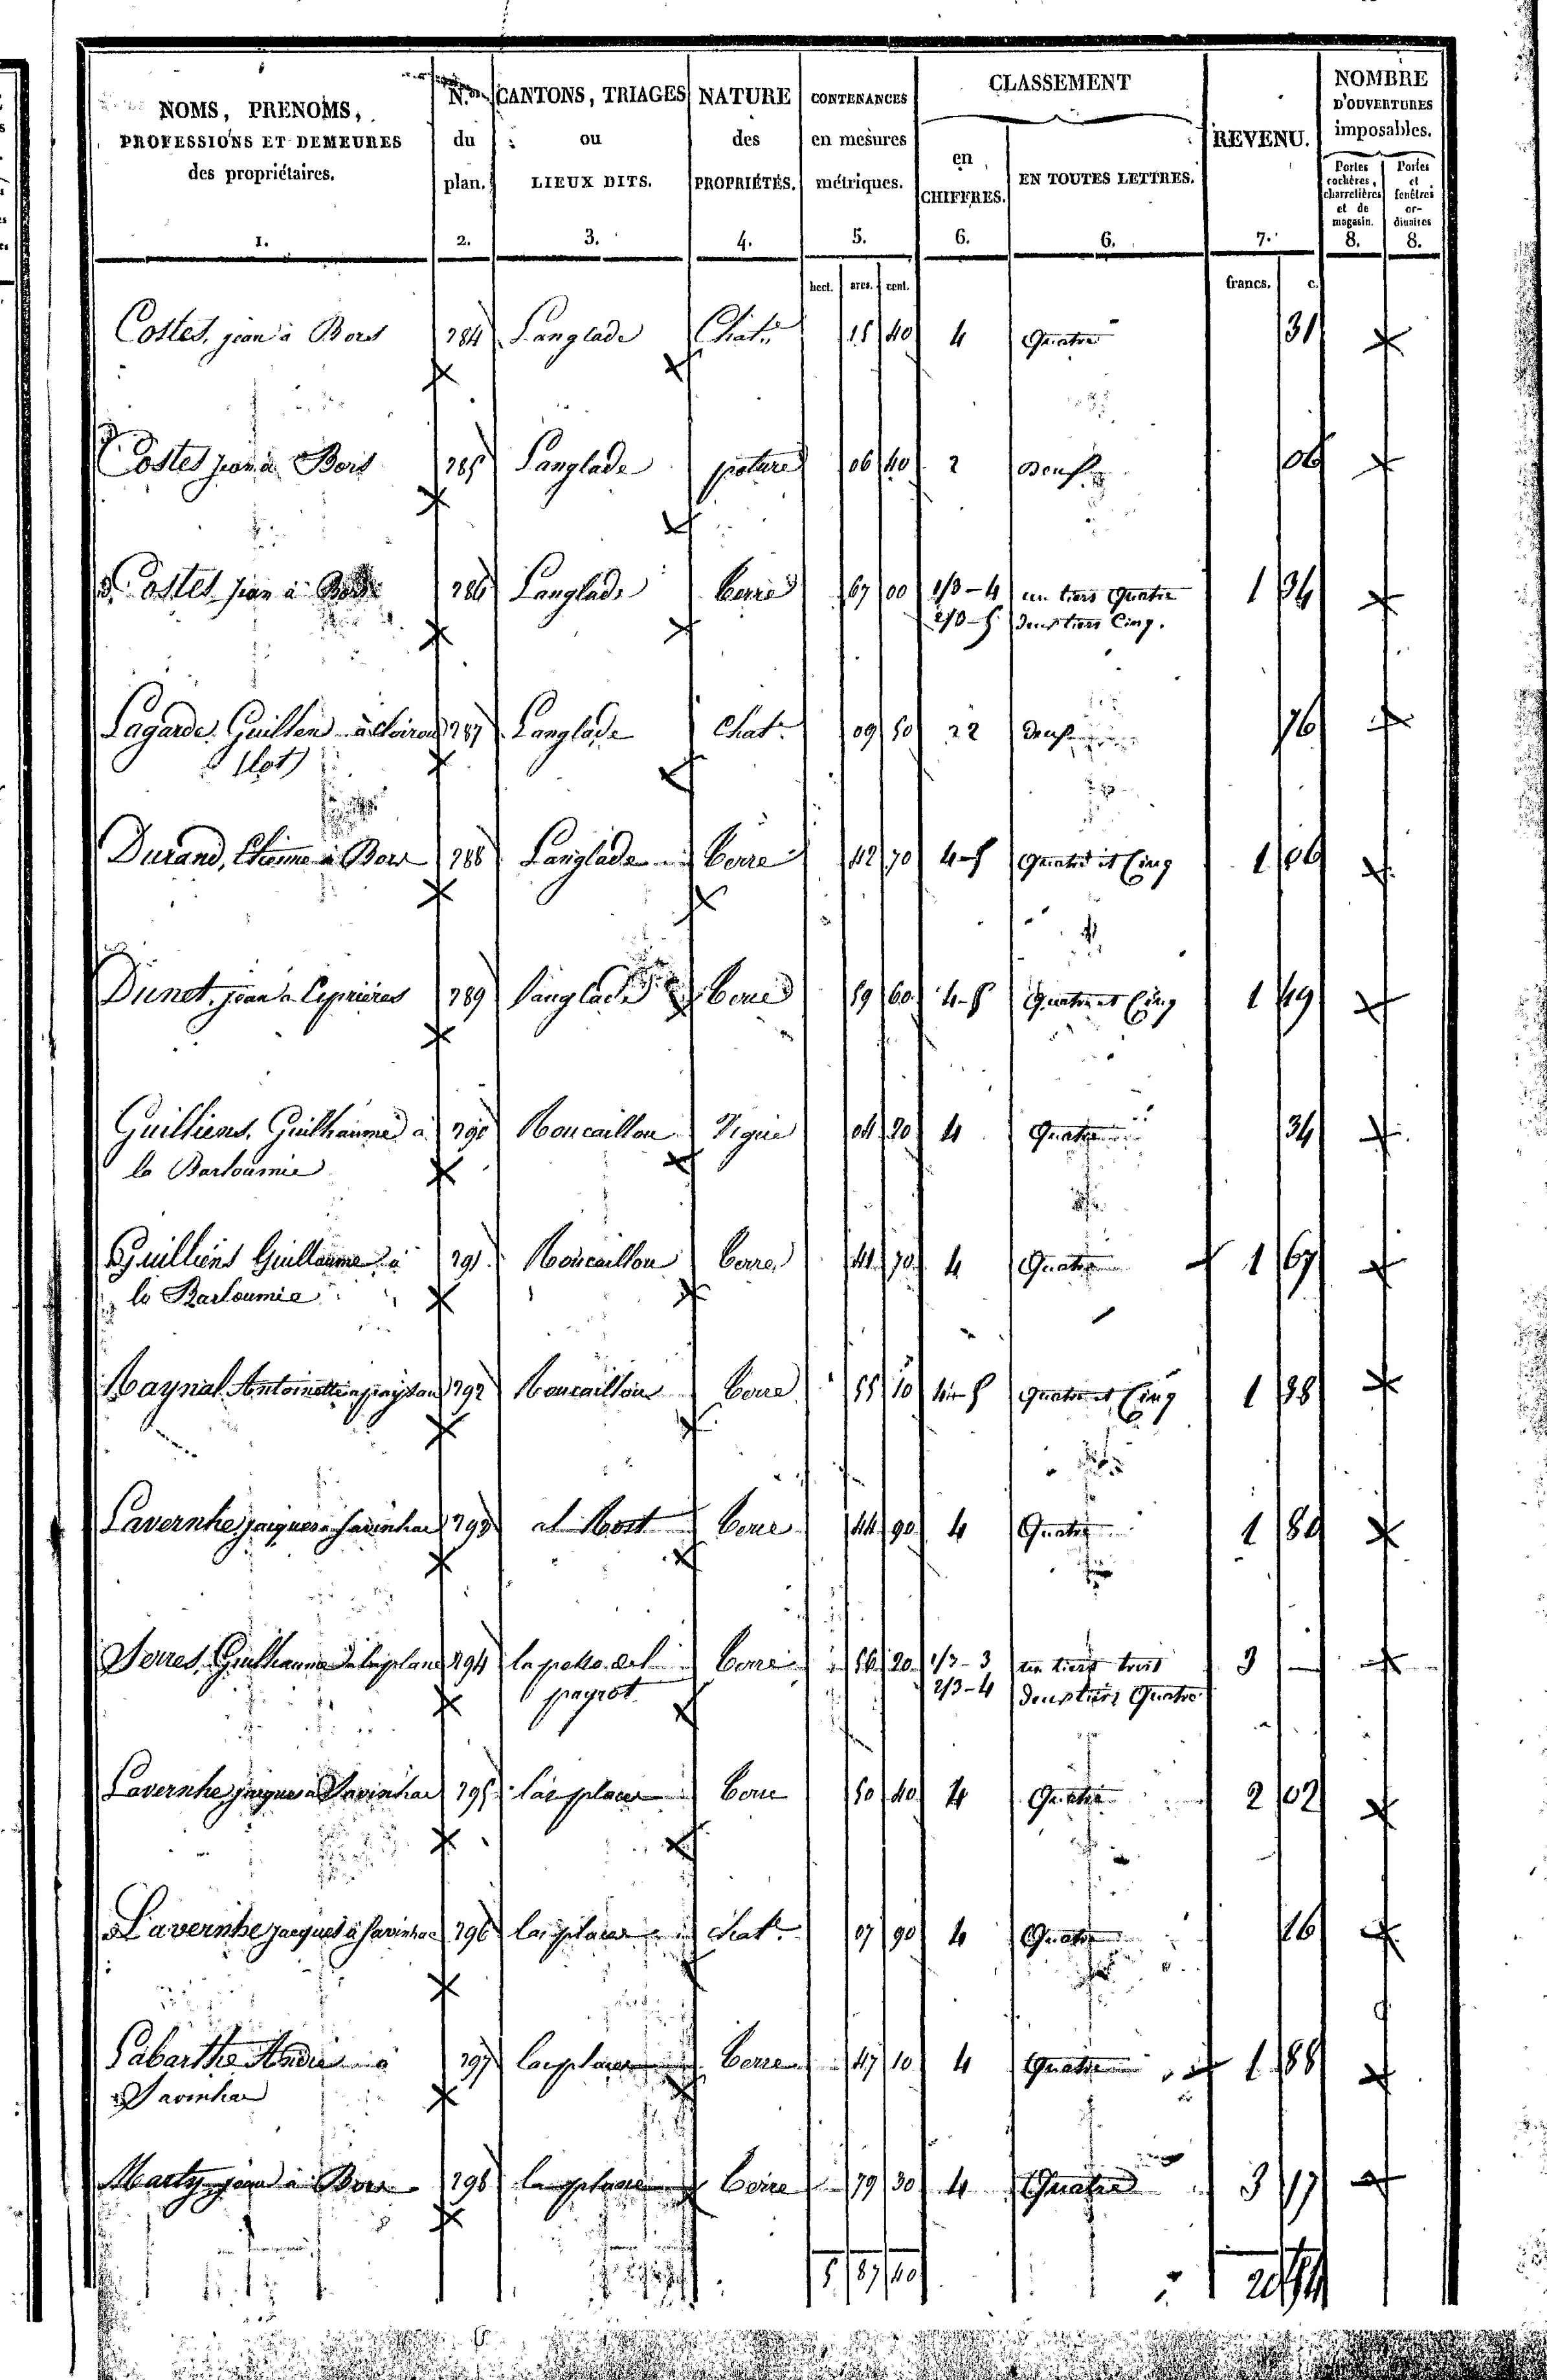 NOMS, PRENOMS, PROFESSIONS ET DEMEURES des propriétaires. 1.
N.os du plan. 2.
CANTONS, TRIAGES ou LIEUX DITS. 3.
NATURE des PROPRIÉTÉS. 4.
CONTENANCES en mesures métriques. 5.
CLASSEMENT
en CHIFFRES. 6.
EN TOUTES LETTRES. 6.
REVENU. 7.
NOMBRE D'OUVERTURES imposables.
Portes cochères, charretières et de magasin. 8.
Portes et fenêtres ordinaires 8.
hect. ares. cent. francs. c.
Costes, jean à Bors 784 Langlade Chat.e 15 40 4 Quatre 31
Costes jean à Bors 785 Langlade pature 06 40 2 Deux 06
Costes jean à Bors 786 Langlade terre 67 00 1/3-4 un tiers Quatre 1 34
2/3-5 deux tiers Cinq.
Lagarde, Guillen 787 Langlade Chat.e 09 50 22 deux 76
(lot)
Durand, Etienne à Bors 788 Langlade terre 42 70 4-5 Quatre et Cinq 1 06
Dunet, jean à Ceprières 789 Langlade terre 59 60 4-5 Quatre et Cinq 1 49
Guilliens, Guilhaume à 790 Moncaillou Vigne 04 20 4 Quatre 34
la Barloumie
Guilliens Guillaume à 791 Moncaillou terre 41 70 4 Quatre 1 67
la Barloumie
Maynal Antoinette 792 Moncaillou terre 55 10 4-5 Quatre et Cinq 1 38
Lavernhe jacques à Savinhac 793 al Most terre 44 90 4 Quatre 1 80
Serres, Guilhaume 794 la pesso del terre 56 20 1/3-3 un tiers trois 3 —
payrot 2/3-4 deux tiers Quatre
Lavernhe jacques à Savinhac 795 las places terre 50 40 4 Quatre 2 02
Lavernhe jacques à Savinhac 796 las places chat.e 07 90 4 Quatre 16
Labarthe André à 797 las places terre 47 10 4 Quatre 1 88
Savinhac
Marty jean à Bors 798 las places terre 79 30 4 Quatre 3 17
5 87 40 20